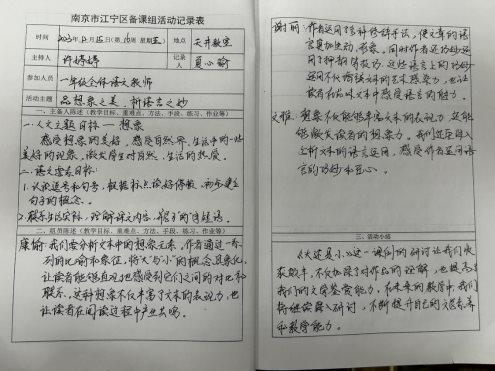 南京市江宁区备课组活动记录表
时间 2023年12月15日(第16周 星期五) 地点 天井教室
主持人 许婷婷 记录人 夏心瑜
参加人员 一年级全体语文教师
活动主题 品想象之美 析语言之妙
一、主备人陈述(教学目标、重难点、方法、手段、练习、作业等)
一、人文主题目标——想象
感受想象的美好,感受自然界、生活中的一些
美好的现象,激发学生对自然、生活的热爱。
二、语文要素目标:
1.认识逗号和句号,根据标点读好停顿,初步建立
句子的概念。
2.联系生活实际,理解课文内容,
二、组员陈述(教学目标、重难点、方法、手段、练习、作业等)
我们要分析文本中的想象元素,作者通过一系
列的比喻和象征,将“大”与“小”的概念具象化,
让读者能够直观地感受到它们之间的对比和
联系,这种想象不仅丰富了文本的表现力,也
让读者在阅读过程中产生共鸣。
谢丽:作者运用了多种修辞手法,使文章的语
言更加生动、形象。同时作者还巧妙运
用了押韵等技巧,这些语言上的巧妙
运用不仅增强文本的艺术感染力,也让
读者在品味文本中感受语言的魅力。
想象不仅能够丰富文本的表现力,还能
够激发读者的想象力。我们还应深入
分析文本的语言运用,感受作者运用语
言的巧妙和匠心。
三、活动小结
《大还是小》这一课例的研讨让我们收
获颇丰,不仅加深了对作品的理解,也提高了
我们的文学鉴赏能力,在未来的教学中,我们
将继续深入研讨,不断提升自己的文学素养
和教学能力。